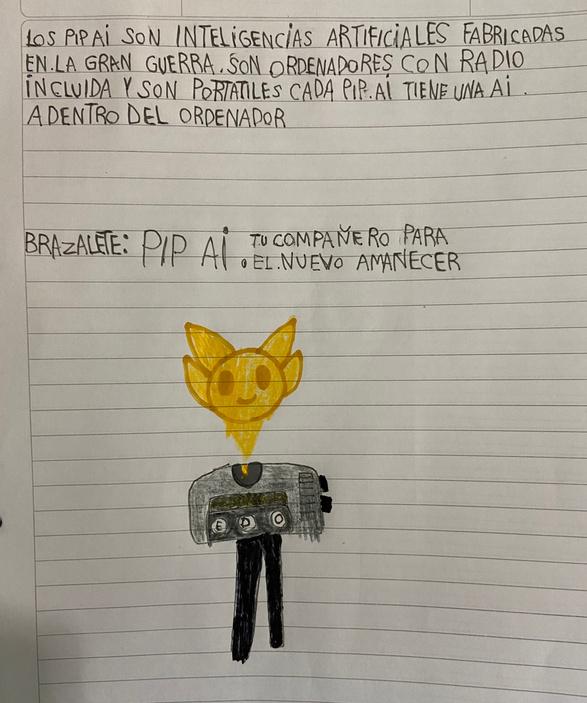 LOS PIPAI SON INTELIGENCIAS ARTIFICIALES FABRICADAS
EN.LA GRAN GUERRA.SON ORDENADORES CON RADIO
INCLUIDA Y SON PORTATILES CADA PIP.AI TIENE UNA AI.
ADENTRO DEL ORDENADOR
BRAZALETE: PIP AI. TU COMPAÑERO PARA
EL.NUEVO AMAÑECER
E D O